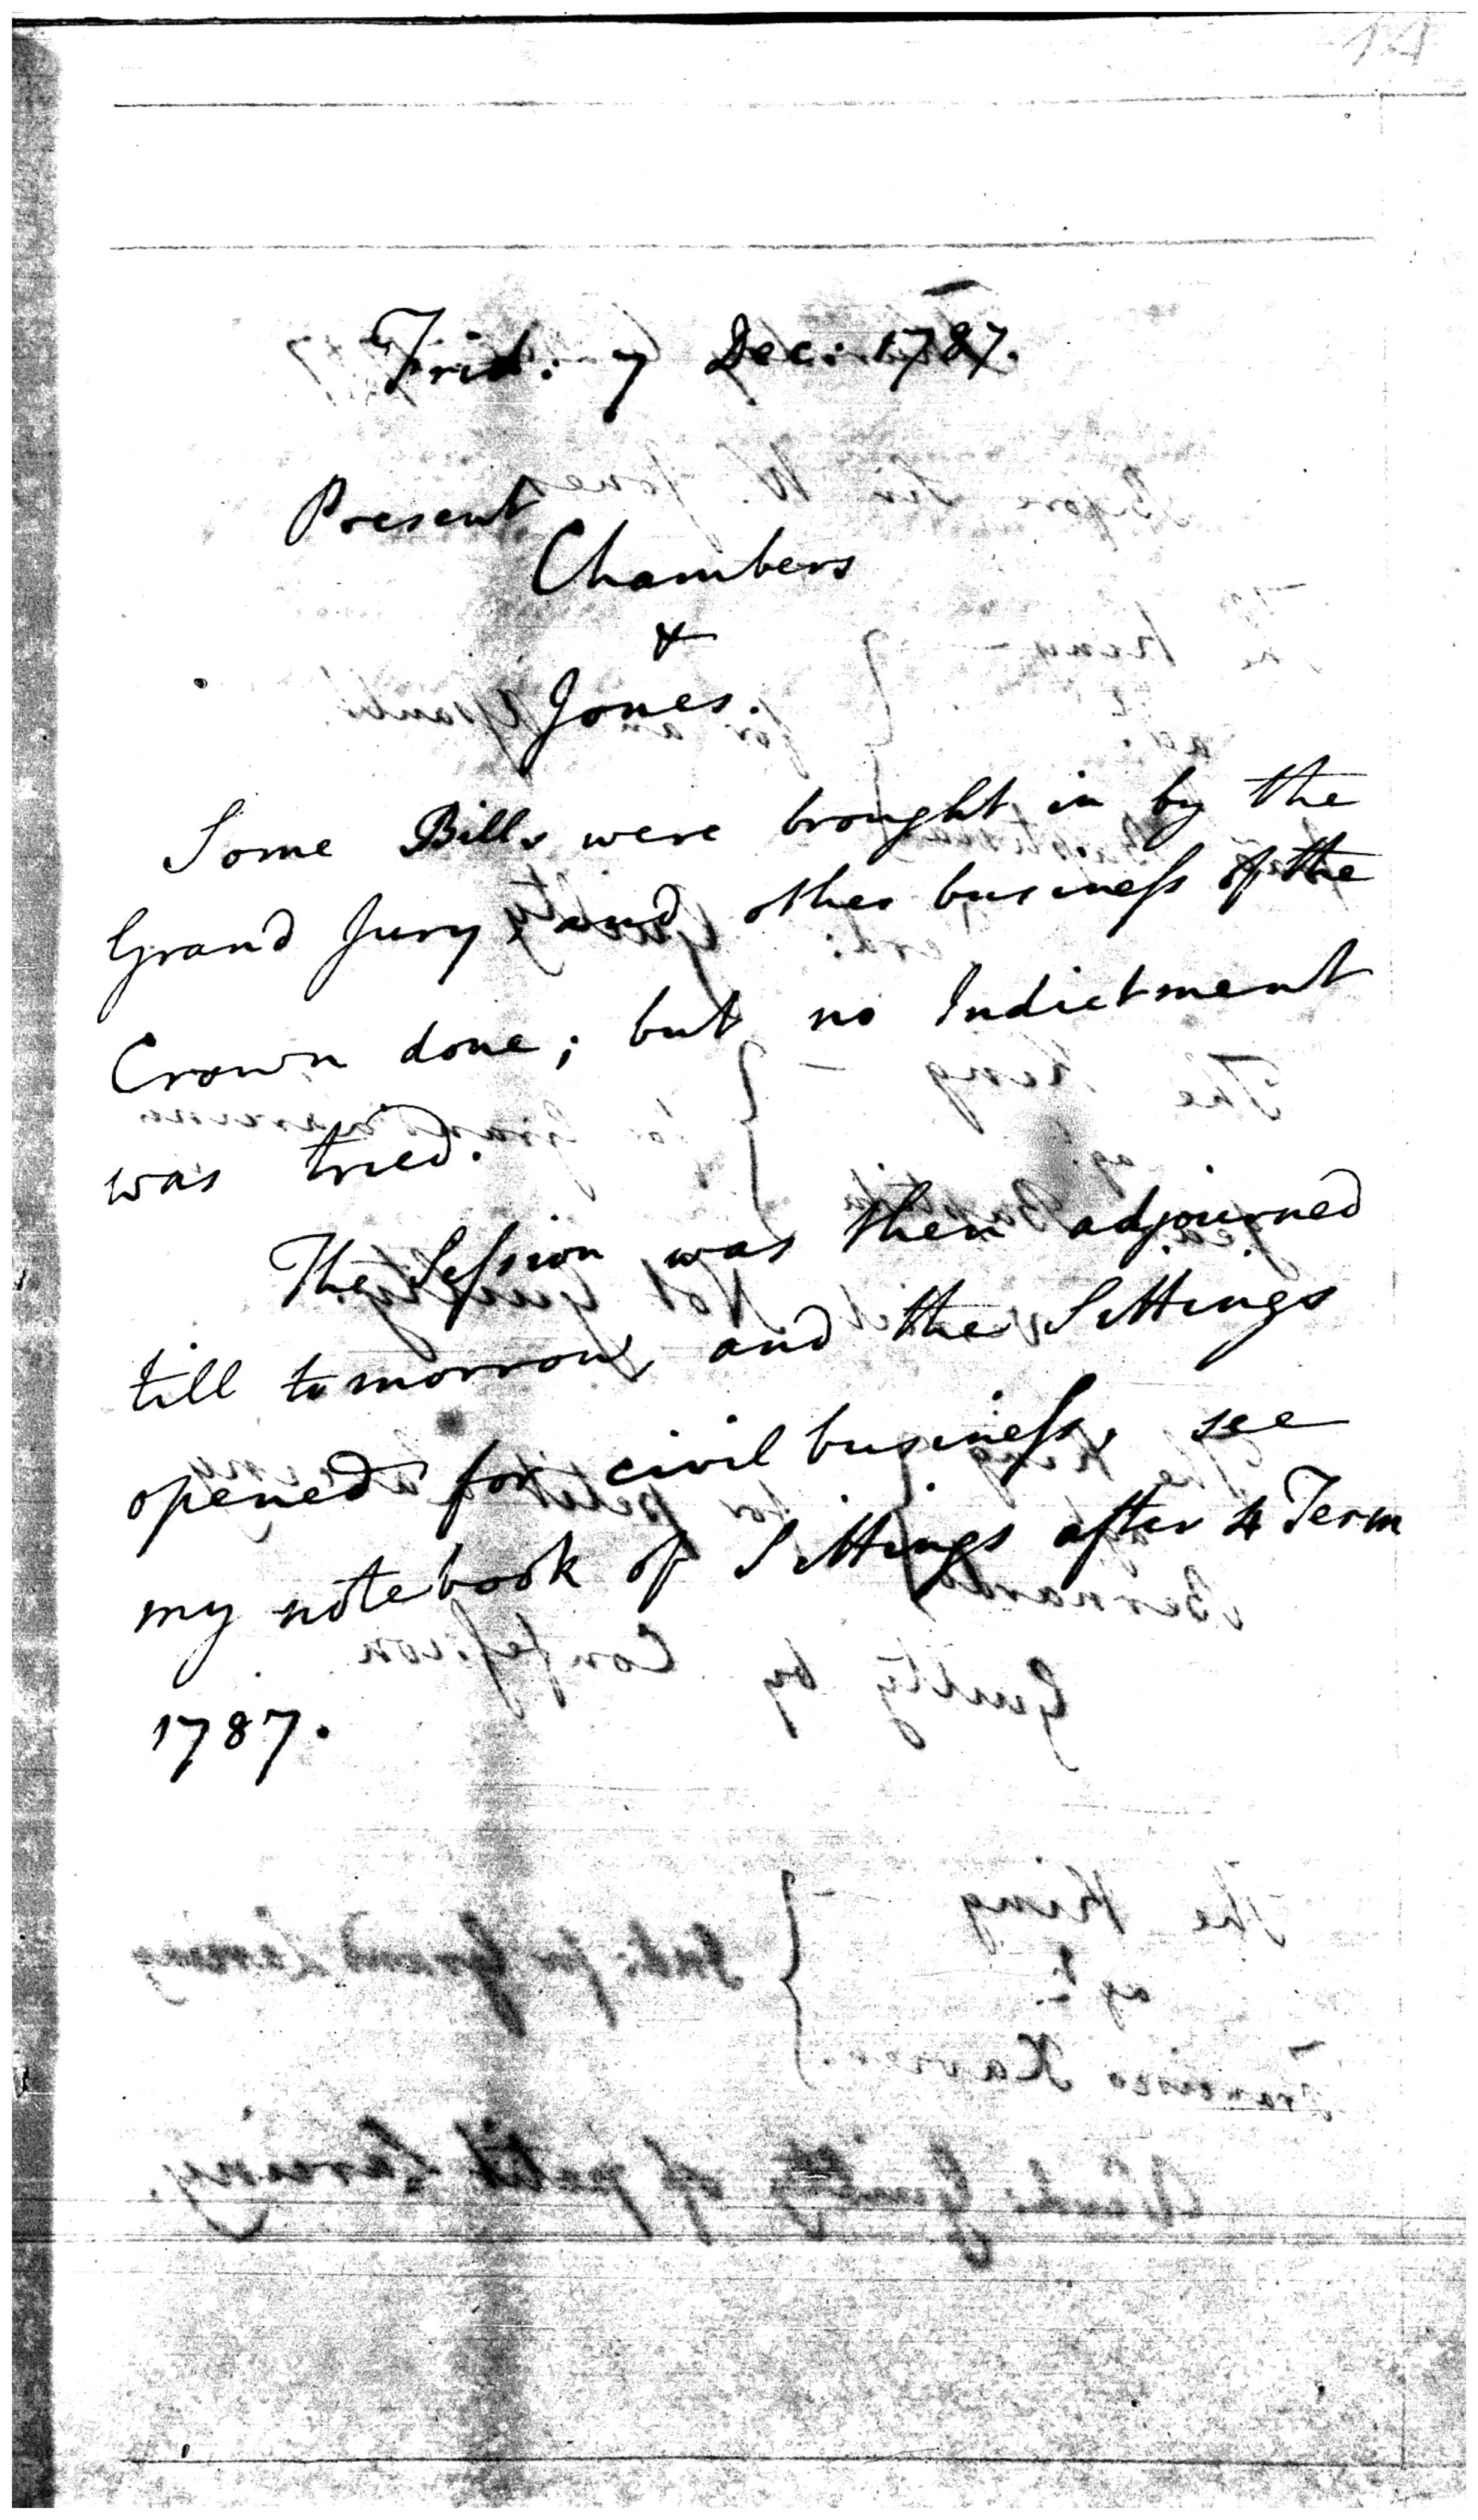 14
Frid: 7 Dec: 1787.
Present
Chambers
&
Jones.
Some Bills were brought in by the
Grand Jury, and other business of the
Crown done; but no Indictment
was tried.
The Session was then adjourned
till tomorrow, and the Sittings
opened for civil business, see
my notebook of Sittings after 4 Term
1787.